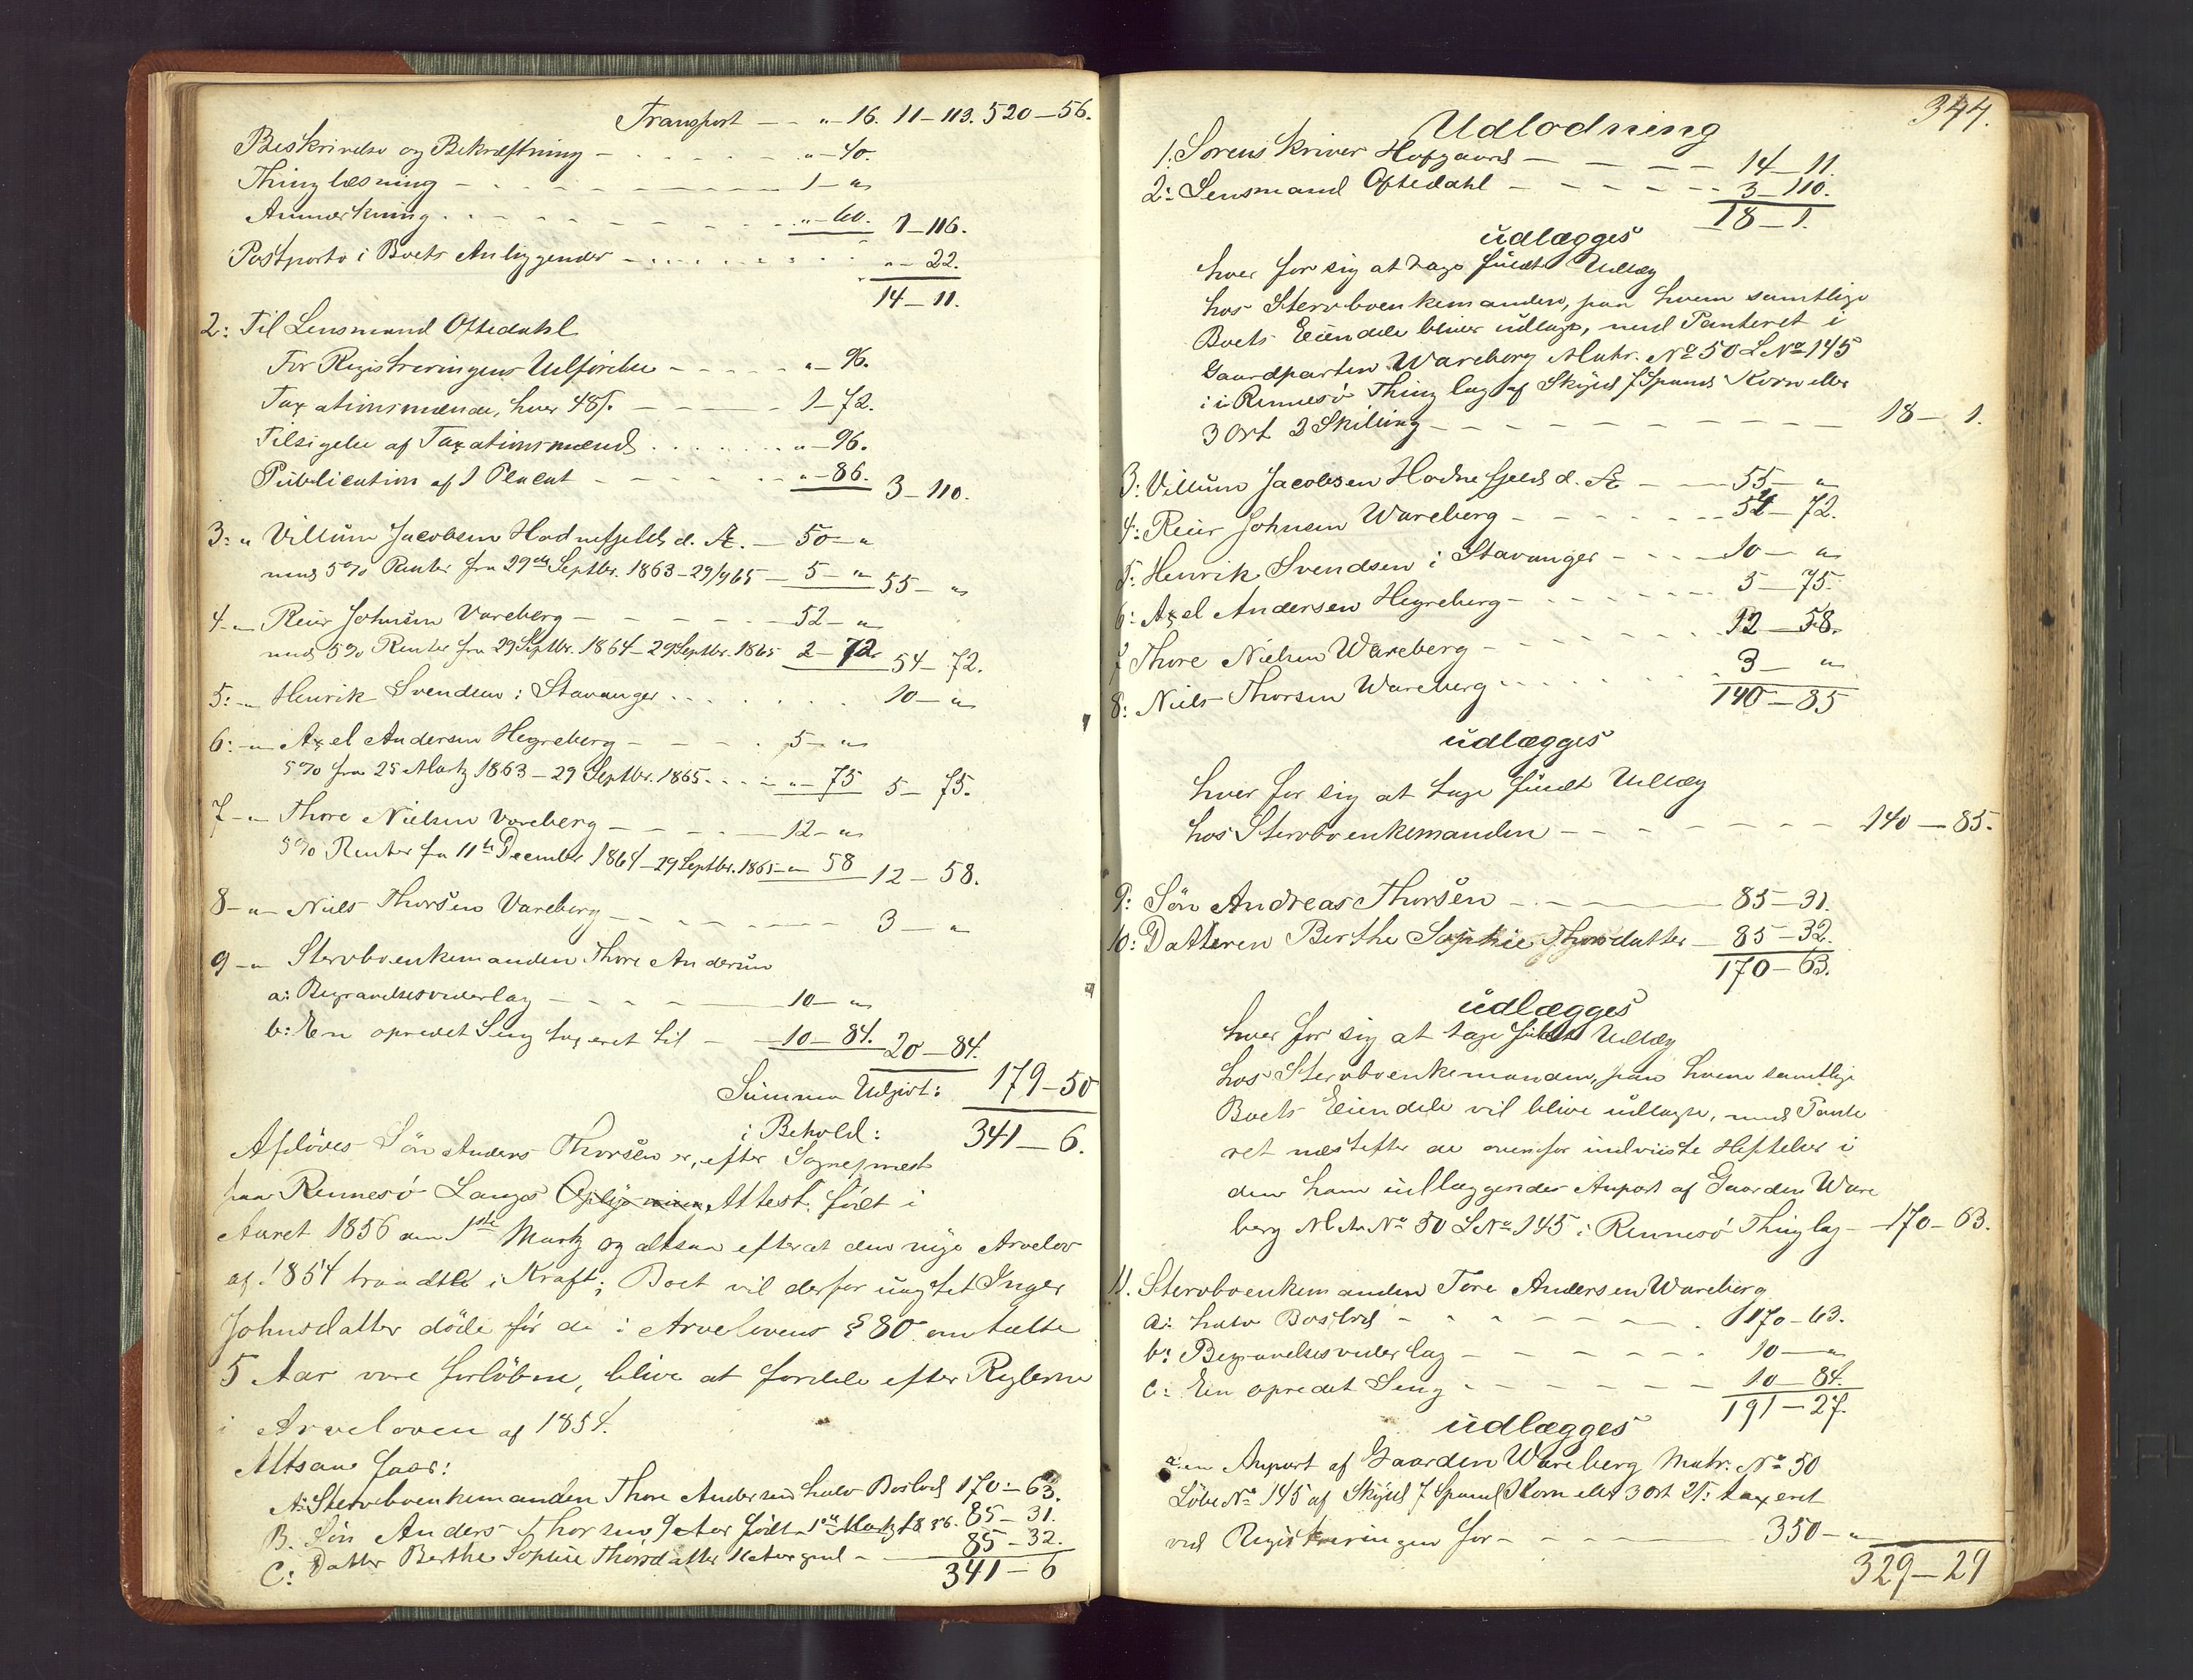 Transport — — „ — 16. 11 — 113. 520 — 56.
Beskrivelse og Bekræftning — „ — 40.
Thinglæsning — 1 — „
Anmærkning — „ — 60. 1 — 116.
Postporto i Boets Anliggender — „ — 22.
14 — 11.
2: Til Lensmand Oftedahl
For Registreringens Udførelse — „ — 96.
Taxationsmænd, hver 48 s. — 1 — 72.
Tilsigelse af Taxationsmænd — „ — 96.
Publication af 1 Placat — „ — 86. 3 — 110.
3: „ Villum Jacobsen Hodnefjeld d. Æ. — 50 — „
med 5 % Renter fra 29de Septbr. 1863 — 29/9 65 — 5 — „ 55 — „
4 — „ Reier Johnsen Vareberg — 52 — „
med 5 % Renter fra 29 Septbr. 1864 — 29 Septbr. 1865 2 — 72. 54 — 72.
5: — „ Henrik Svendsen i Stavanger — 10 — „
6: — „ Axel Andersen Hegreberg — 5 — „
5 % fra 25 Martz 1863 — 29 Septbr. 1865 — „ — 75 5 — 75.
7 — „ Thore Nielsen Vareberg — 12 — „
5 % Renter fra 11te December 1864 — 29 Septbr. 1865 — „ 58 12 — 58.
8 — „ — Niels Thorsen Vareberg — 3 — „
9 — „ Stervboenkemanden Thore Andersen
a: Begravelsesvederlag — 10 — „
b: En opredet Seng taxeret til — 10 — 84. 20 — 84.
Summa Udgivt: 179 — 50
i Behold: 341 — 6.
Afdødes Søn Anders Thorsen er, efter Sognepræst
paa Rennesø Langes Attest, født i
Aaret 1856 den 1ste Martz og altsaa efterat den nye Arvelov
af 1854 traadte i Kraft; Boet vil derfor uagtet Inger
Johnsdatter døde før de i Arvelovens § 80 omtalte
5 Aar vare forløbne, blive at fordele efter Reglerne
i Arveloven af 1854.
Altsaa faar:
A: Stervboenkemanden Thore Andersen halv Boslod 170 — 63.
B. Søn Anders Thorsen 9 Aar født 1ste Martz 1856. 85 — 31.
C: Datter Berthe Sophie Thorsdatter 11 Aar gml — 85 — 32.
341 — 6
344.
Udlodning
1. Sorenskriver Hofgaard — 14 — 11.
2: Lensmand Oftedahl — 3 — 110.
18 — 1.
udlægges
hver for sig at tage fuldt Udlæg
hos Stervboenkemanden, paa hvem samtlige
Boets Eiendele bliver udlagt, med Panteret i
Gaardparten Wareberg Matr. No 50 L No 145
i Rennesø Thinglag af Skyld 7 Spands Korn eller
3 Ort 2 Skilling — 18 — 1.
3: Villum Jacobsen Hodnefjeld d. Æ — 55 — „
4: Reier Johnsen Wareberg — 54 — 72.
5: Henrik Svendsen i Stavanger — 10 — „
6: Axel Andersen Hegreberg — 5 — 75.
7 Thore Nielsen Wareberg — 12 — 58.
8: Niels Thorsen Wareberg — 3 — „
140 — 85
udlægges
hver for sig at tage fuldt Udlæg
hos Stervboenkemanden — 140 — 85.
9: Søn Andreas Thorsen — 85 — 31.
10: Datteren Berthe Sophie Thorsdatter — 85 — 32.
170 — 63.
udlægges
hver for sig at tage fuldt Udlæg
hos Stervboenkemanden, paa hvem samtlige
Boets Eiendele vil blive udlagte, med Pante
ret næstefter de ovenfor indviiste Heftelser i
den ham udlæggendes Anpart af Gaarden Ware
berg Matr No 50 L No 145 i Rennesø Thinglag — 170 — 63.
11. Stervboenkemanden Tore Andersen Wareberg
a: halv Boslod — 170 — 63.
b: Begravelsesvederlag — 10 — „
c: En opredet Seng — 10 — 84.
191 — 27.
udlægges
a: en Anpart af Gaarden Wareberg Matr. No 50
Løbe No 145 af Skyld 7 Spand Korn eller 3 Ort 2 s: taxeret
ved Registreringen for — 350 — „
329 — 29